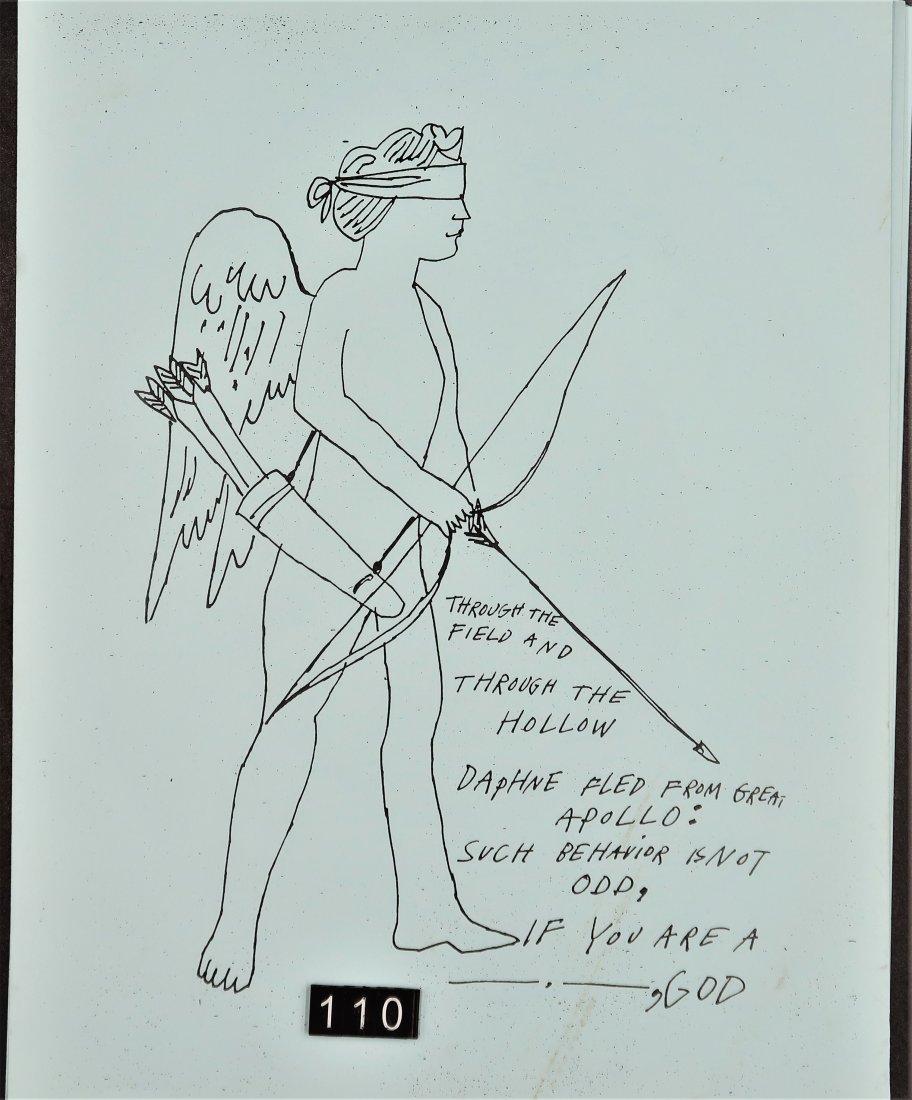 THROUGH THE
FIELD AND
THROUGH THE
HOLLOW
DAPHNE FLED FROM GREAT
APOLLO:
SUCH BEHAVIOR IS NOT
ODD,
IF YOU ARE A
———.———,GOD
110